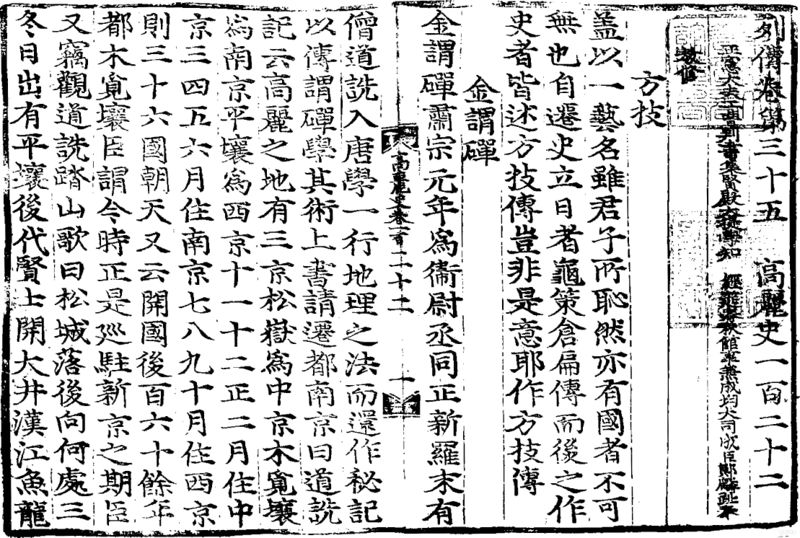 列傳卷第三十五 高麗史一百二十二
正憲大夫工曹判書集賢殿大提學知 經筵春秋館事兼成均大司成臣鄭麟趾奉
敎修
方技
蓋以一藝名雖君子所恥然亦有國者不可
無也自遷史立日者龜策倉扁傳而後之作
史者皆述方技傳豈非是意耶作方技傳
金謂磾
金謂磾肅宗元年爲衛尉丞同正新羅末有
高麗史卷一百二十二 一
僧道詵入唐學一行地理之法而還作秘記
以傳謂磾學其術上書請遷都南京曰道詵
記云高麗之地有三京松嶽爲中京木覓壤
爲南京平壤爲西京十一十二正二月住中
京三四五六月住南京七八九十月住西京
則三十六國朝天又云開國後百六十餘年
都木覓壤臣謂今時正是巡駐新京之期臣
又竊觀道詵踏山歌曰松城落後向何處三
冬日出有平壤後代賢士開大井漢江魚龍